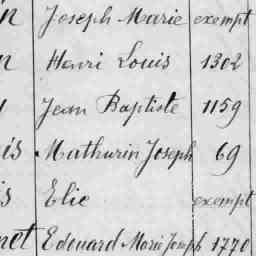 n Joseph Marie exempt
n Henri Louis 1302
Jean Baptiste 1159
is Mathurin Joseph 69
is Elie exempt
net Edouard Marie Joseph 1770